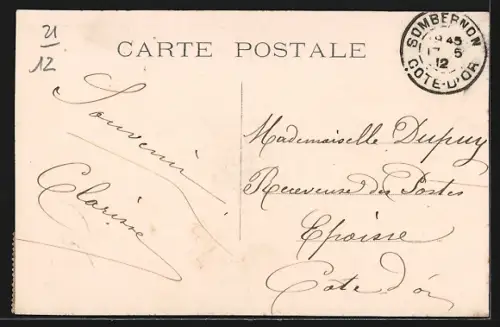 21
12
CARTE POSTALE
SOMBERNON
45
5
12
COTE-D'OR
Souvenir
Clarisse
Mademoiselle Dupuy
Receveuse des Postes
Epoisse
Cote d'or